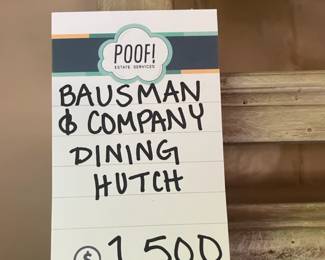 POOF!
ESTATE SERVICES
BAUSMAN
& COMPANY
DINING
HUTCH
$ 1,500